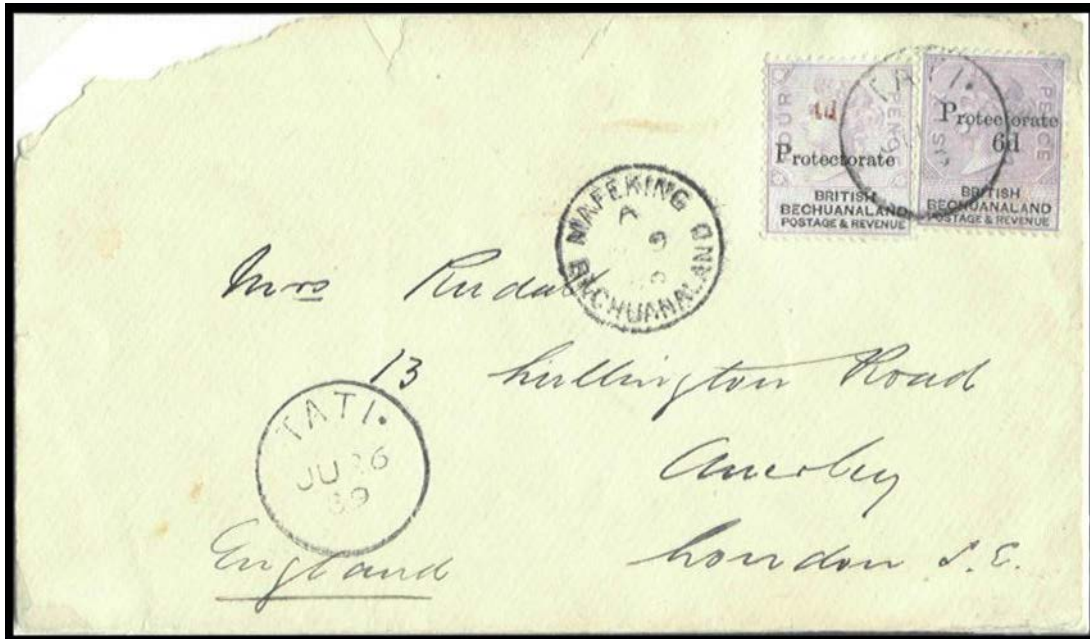 FOUR PENCE
4d
Protectorate
BRITISH
BECHUANALAND
POSTAGE & REVENUE
SIX PENCE
Protectorate
6d
BRITISH
BECHUANALAND
POSTAGE & REVENUE
TATI.
MAFEKING
A
9
BECHUANALAND
Mrs
13 Lullington Road
Anerley
London S.E.
England
TATI.
JU 26
89